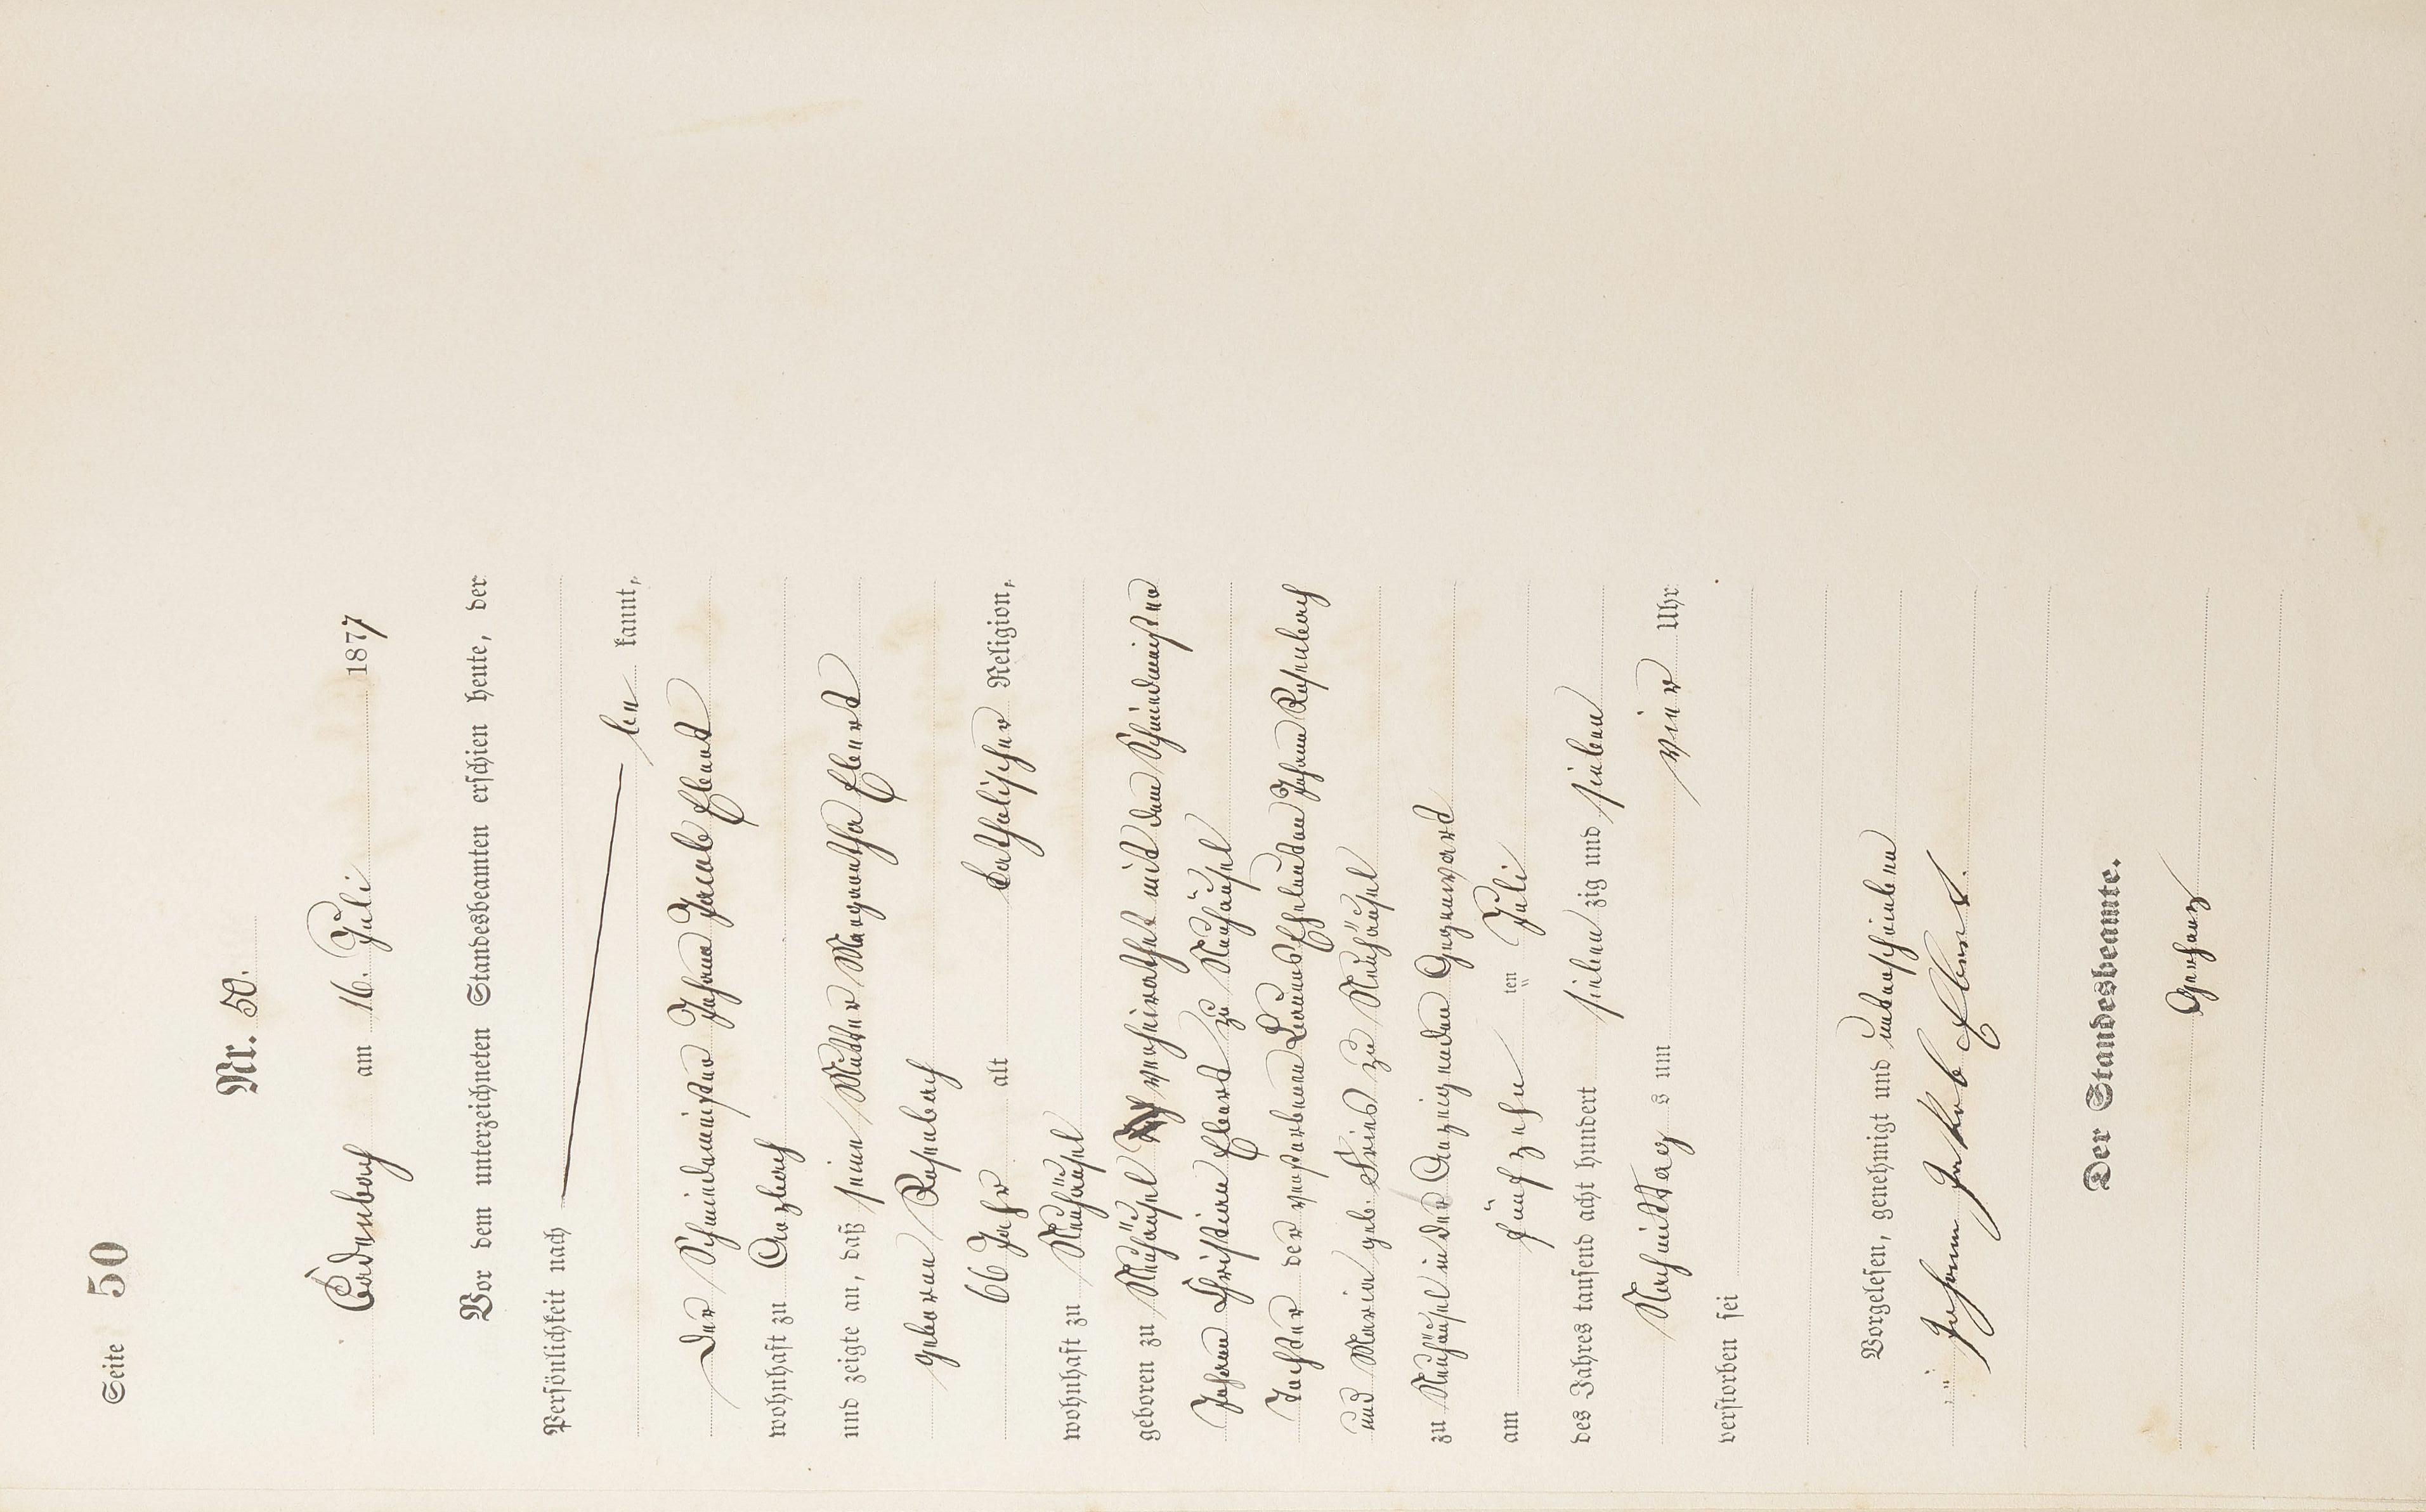 Seite 50
Nr. 50.
Cadenbach am 16. Juli 1877
Vor dem unterzeichneten Standesbeamten erschien heute, der
Persönlichkeit nach
be kannt,
Der Schmiedemeister Johann Jacob Ebert
wohnhaft zu Arzbach
und zeigte an, daß seine Mutter Margaretha Ebert
geborene Rosenbach
66 Jahr alt katholischer Religion,
wohnhaft zu Neuhäusel
geboren zu Neuhäusel verheirathet mit dem Schmiedmeister
Johann Christian Ebert zu Neuhäusel
Tochter der verstorbenen Eheleuten Johann Rosenbach
und Maria geb. Fries zu Neuhäusel
zu Neuhäusel in des Anzeigenden Gegenward
am fünfzehn ten Juli
des Jahres tausend acht hundert sieben zig und sieben
Nachmittag s um vier Uhr
verstorben sei
Vorgelesen, genehmigt und unterschrieben
Johann Jakob Ebert.
Der Standesbeamte.